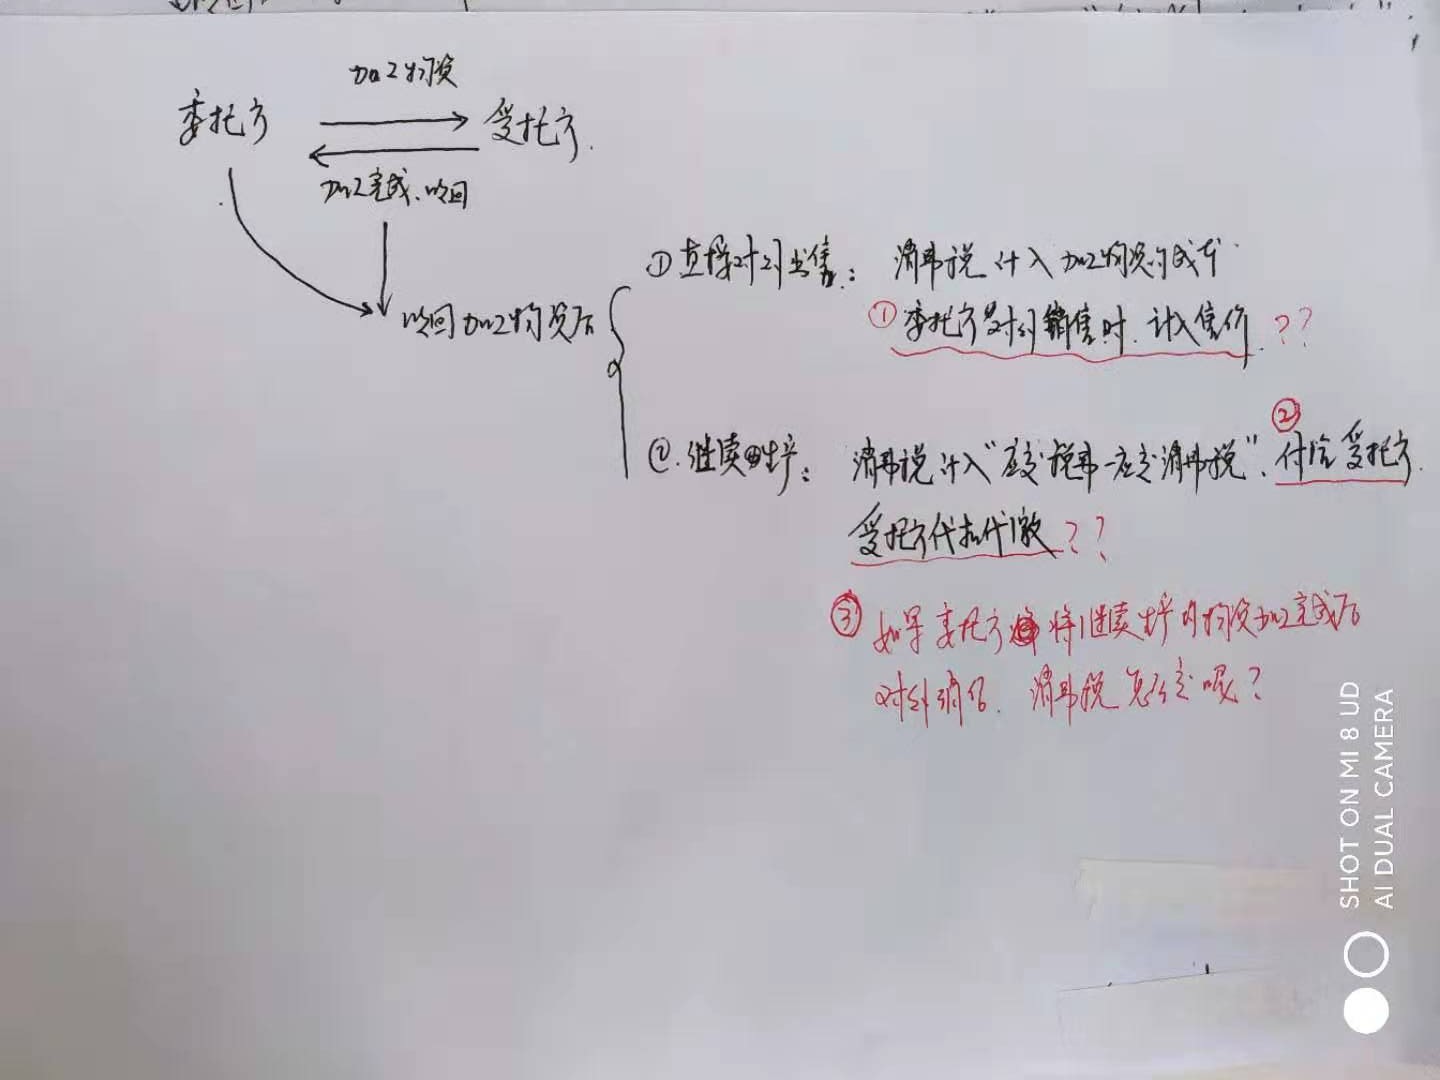 加工物资
委托方
受托方.
加工完成.收回
收回加工物资后
①直接对外出售: 消费税计入加工物资的成本.
①委托方是对外销售时.计入售价.??
②.继续生产: 消费税计入"应交税费—应交消费税".②付给受托方.
受托方代扣代缴??
③如果委托方将继续生产的物资加工完成后
对外销售.消费税怎么交呢?
SHOT ON MI 8 UD
AI DUAL CAMERA